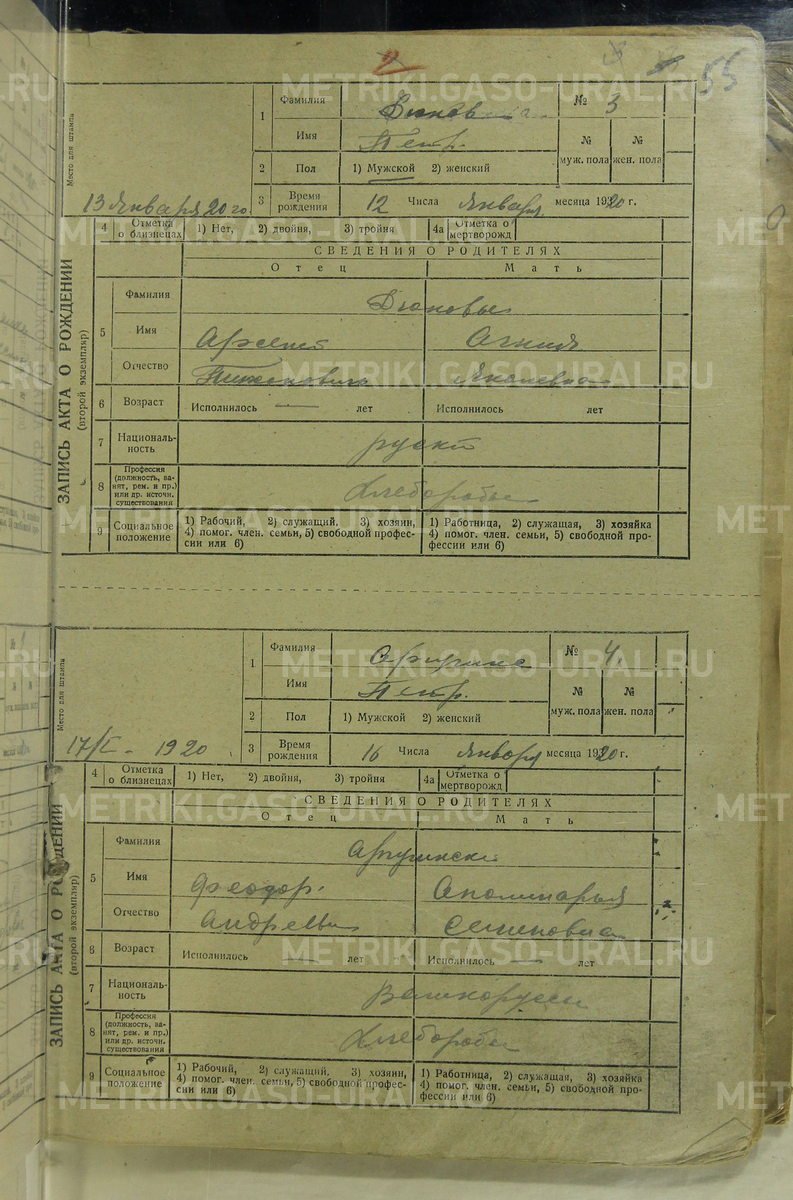 2
55
METRIKI.GASO-URAL.RU
Место для штампа
1
Фамилия
№ 3
Имя
Петр.
№ муж. пола
№ жен. пола
2
Пол
1) Мужской 2) женский
13 Января 20 го.
3
Время рождения
12 Числа Января месяца 1920 г.
ЗАПИСЬ АКТА О РОЖДЕНИИ
(второй экземпляр)
4
Отметка о близнецах
1) Нет, 2) двойня, 3) тройня
4а
Отметка о мертворожд
СВЕДЕНИЯ О РОДИТЕЛЯХ
Отец
Мать
5
Фамилия
Дюковы
Имя
Арсений
Агния
Отчество
6
Возраст
Исполнилось — лет
Исполнилось лет
7
Националь-
ность
руский
8
Профессия
(должность, за-
нят, рем. и пр.)
или др. источн.
существования
Хлеборобы
9
Социальное
положение
1) Рабочий, 2) служащий, 3) хозяин,
4) помог. член. семьи, 5) свободной профес-
сии или 6)
1) Работница, 2) служащая, 3) хозяйка
4) помог. член. семьи, 5) свободной про-
фессии или 6)
Место для штампа
1
Фамилия
№ 4.
Имя
Петр.
№ муж. пола
№ жен. пола
2
Пол
1) Мужской 2) женский
17/I - 1920
3
Время рождения
16 Числа Января месяца 1920 г.
ЗАПИСЬ АКТА О РОЖДЕНИИ
(второй экземпляр)
4
Отметка о близнецах
1) Нет, 2) двойня, 3) тройня
4а
Отметка о мертворожд
СВЕДЕНИЯ О РОДИТЕЛЯХ
Отец
Мать
5
Фамилия
Имя
Феодор.
Аполинарья
Отчество
Андреевич
Семеновна
6
Возраст
Исполнилось — лет
Исполнилось — лет
7
Националь-
ность
Великоруссы
8
Профессия
(должность, за-
нят, рем. и пр.)
или др. источн.
существования
Хлеборобы
9
Социальное
положение
1) Рабочий, 2) служащий, 3) хозяин,
4) помог. член. семьи, 5) свободной профес-
сии или 6)
1) Работница, 2) служащая, 3) хозяйка
4) помог. член. семьи, 5) свободной про-
фессии или 6)